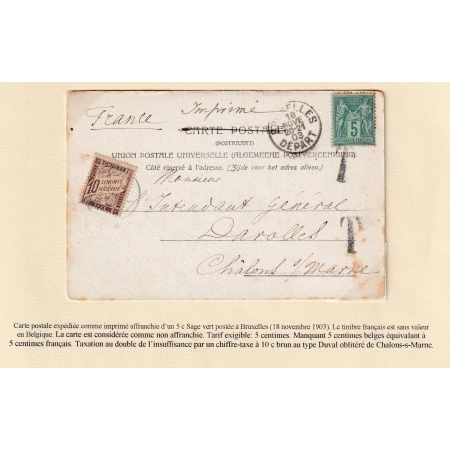 France
Imprimé
BRUXELLES
18
NOVE
20-21
03
DÉPART
5
CARTE POSTALE
(POSTKAART)
UNION POSTALE UNIVERSELLE (ALGEMEENE POSTVEREENIGING)
Côté réservé à l'adresse. (Zijde voor het adres alleen)
10
CENTIMES
À PERCEVOIR
T
Monsieur
L'Intendant Général
Darolles
T
Châlons s/Marne
Carte postale expédiée comme imprimé affranchie d'un 5 c Sage vert postée à Bruxelles (18 novembre 1903). Le timbre français est sans valeur
en Belgique. La carte est considérée comme non affranchie. Tarif exigible: 5 centimes. Manquant 5 centimes belges équivalant à
5 centimes français. Taxation au double de l'insuffisance par un chiffre-taxe à 10 c brun au type Duval oblitéré de Chalons-s-Marne.